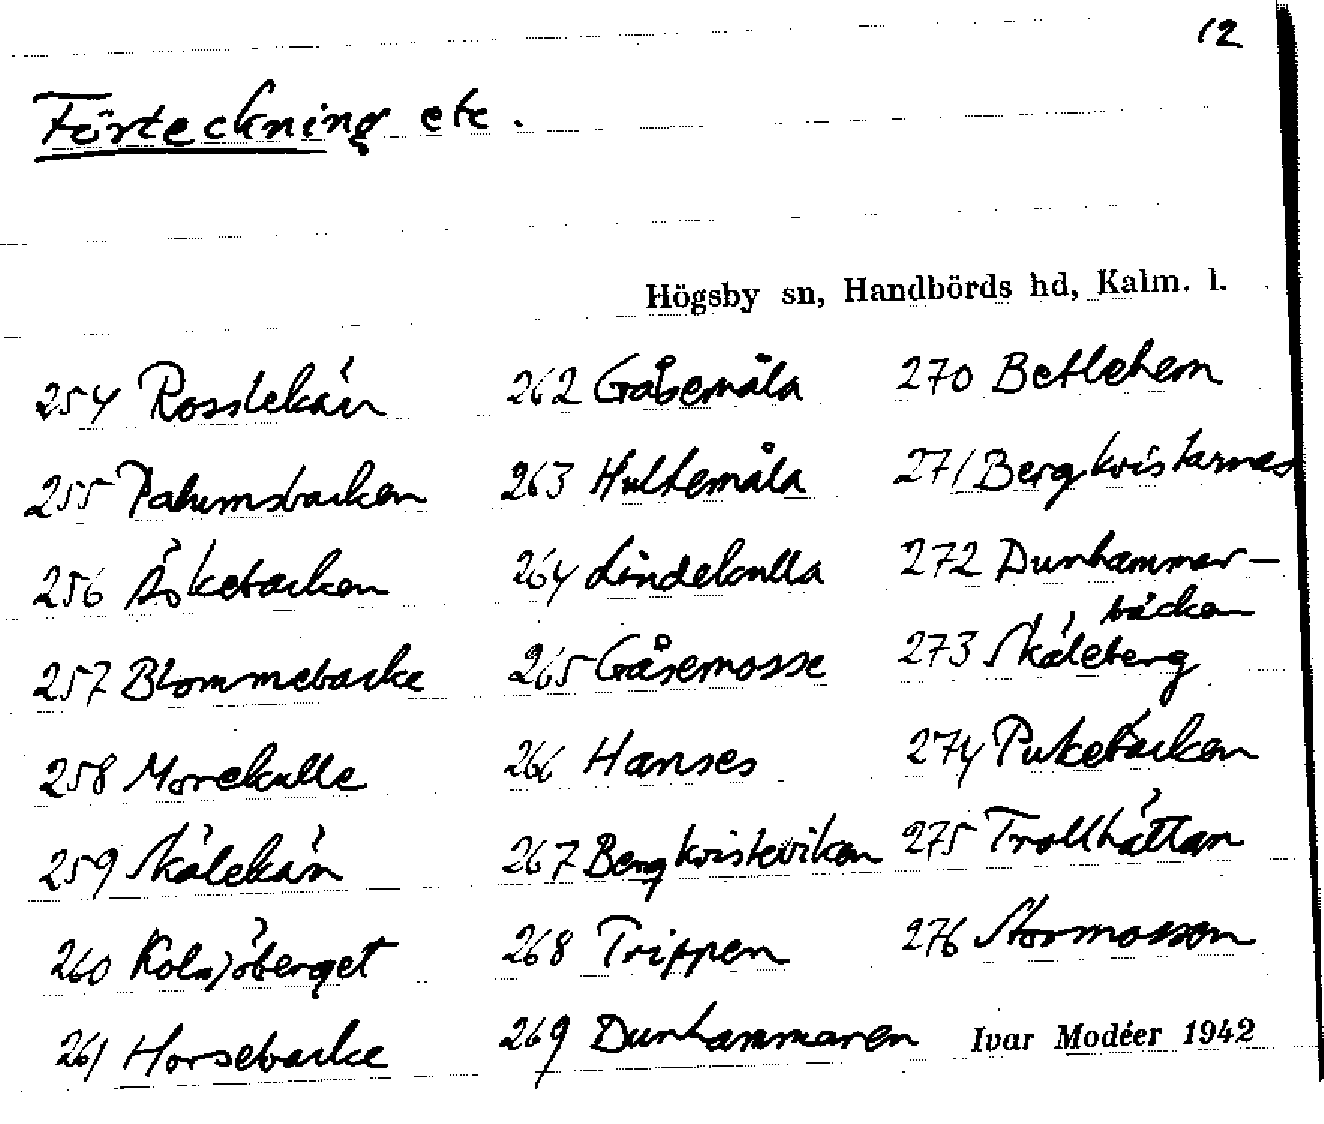 12
Förteckning etc.
Högsby sn, Handbörds hd, Kalm. l.
254 Rosslekärr
255 Palumsbacken
256 Äskebacken
257 Blommebacke
258 Morekulle
259 Skälekärr
260 Kolsjöberget
261 Horsebacke
262 Gåsemåla
263 Hultemåla
264 Lindekulla
265 Gåsemosse
266 Hanses
267 Bergkvisteviken
268 Trippen
269 Dunhammaren
270 Betlehem
271 Bergkvistarnas
272 Dunhammar-
bäcken
273 Skäleberg
274 Pukebacken
275 Trollhättan
276 Stormossen
Ivar Modéer 1942